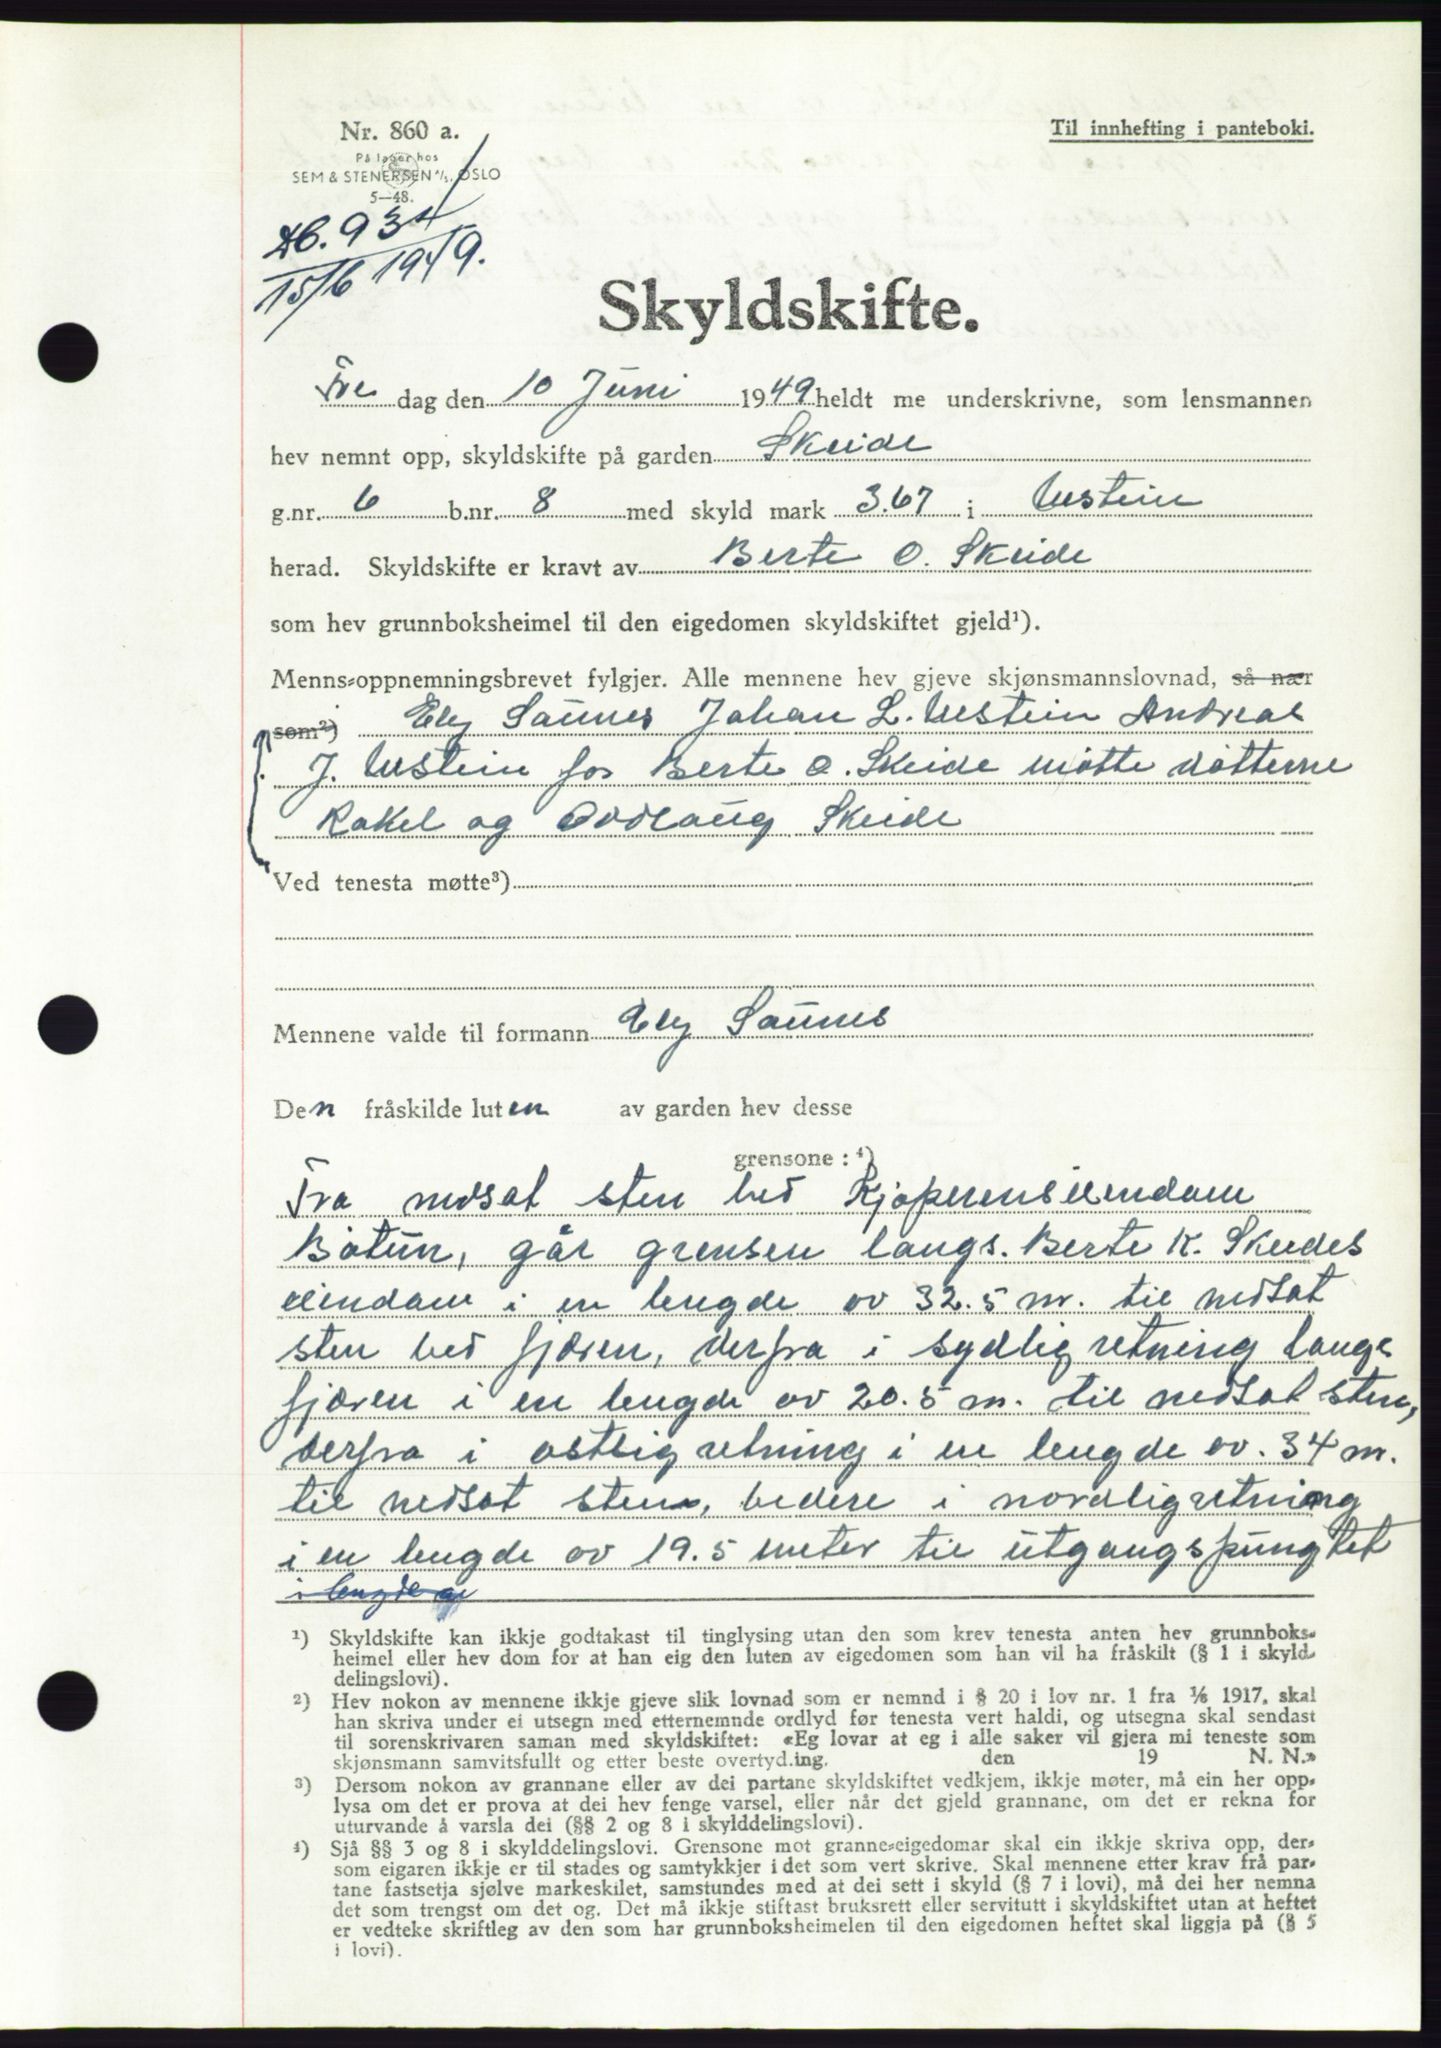 Nr. 860 a.
På lager hos
SEM & STENERSEN A/S, OSLO
5—48.
Til innhefting i panteboki.
Db. 934
15/6 1949.
Skyldskifte.
Fre dag den 10 Juni 1949 heldt me underskrivne, som lensmannen
hev nemnt opp, skyldskifte på garden Skeide
g.nr. 6 b.nr. 8 med skyld mark 3.67 i Ulstein
herad. Skyldskifte er kravt av Berte O. Skeide
som hev grunnboksheimel til den eigedomen skyldskiftet gjeld¹).
Menns-oppnemningsbrevet fylgjer. Alle mennene hev gjeve skjønsmannslovnad, så nær
som²) Ely Saunes Johan L. Ulstein Andreas
J. Ulstein for Berte O. Skeide møtte døtterne
Rakel og Oddlaug Skeide
Ved tenesta møtte³)
Mennene valde til formann Ely Saunes
Den fråskilde luten av garden hev desse
grensone : ⁴)
Fra nedsat sten ved Kjøperens eiendam
Båtun, går grensen langs. Berte K. Skeides
eiendam i en lengde av 32.5 m. til nedsat
sten ved fjæren, derfra i sydlig retning langs
fjæren i en lengde av 20.5 m. til nedsat sten,
derfra i østlig retning i en lengde av. 34 m.
til nedsat sten, videre i nordlig retning
i en lengde av 19.5 meter til utgangspungtet
i lengde av
¹) Skyldskifte kan ikkje godtakast til tinglysing utan den som krev tenesta anten hev grunnboks-
heimel eller hev dom for at han eig den luten av eigedomen som han vil ha fråskilt (§ 1 i skyld-
delingslovi).
²) Hev nokon av mennene ikkje gjeve slik lovnad som er nemnd i § 20 i lov nr. 1 fra 1/6 1917, skal
han skriva under ei utsegn med etternemnde ordlyd før tenesta vert haldi, og utsegna skal sendast
til sorenskrivaren saman med skyldskiftet: «Eg lovar at eg i alle saker vil gjera mi teneste som
skjønsmann samvitsfullt og etter beste overtyd.ing. den 19 N. N.»
³) Dersom nokon av grannane eller av dei partane skyldskiftet vedkjem, ikkje møter, må ein her opp-
lysa om det er prova at dei hev fenge varsel, eller når det gjeld grannane, om det er rekna for
uturvande å varsla dei (§§ 2 og 8 i skylddelingslovi).
⁴) Sjå §§ 3 og 8 i skylddelingslovi. Grensone mot granne-eigedomar skal ein ikkje skriva opp, der-
som eigaren ikkje er til stades og samtykkjer i det som vert skrive. Skal mennene etter krav frå par-
tane fastsetja sjølve markeskilet, samstundes med at dei sett i skyld (§ 7 i lovi), må dei her nemna
det som trengst om det og. Det må ikkje stiftast bruksrett eller servitutt i skyldskiftet utan at heftet
er vedteke skriftleg av den som har grunnboksheimelen til den eigedomen heftet skal liggja på (§ 5
i lovi).